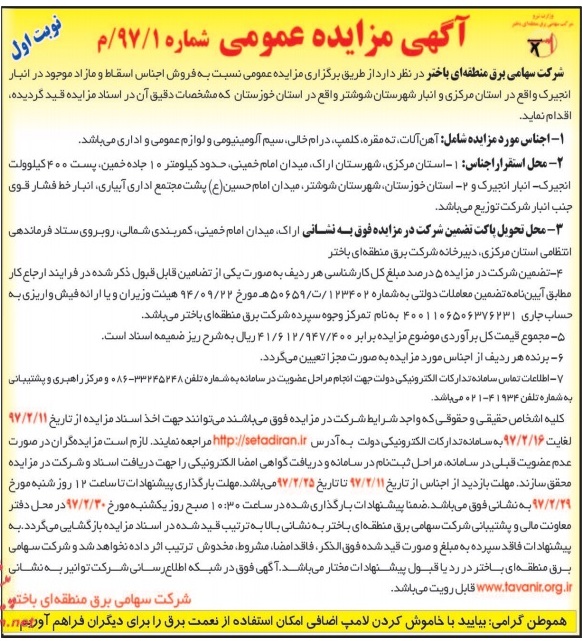 نوبت اول
آگهی مزایده عمومی شماره ۹۷/۱/م
وزارت نیرو
شرکت سهامی برق منطقه‌ای باختر
شرکت سهامی برق منطقه‌ای باختر در نظر دارد از طریق برگزاری مزایده عمومی نسبت به فروش اجناس اسقاط و مازاد موجود در انبار
انجیرک واقع در استان مرکزی و انبار شهرستان شوشتر واقع در استان خوزستان که مشخصات دقیق آن در اسناد مزایده قید گردیده،
اقدام نماید.
۱- اجناس مورد مزایده شامل: آهن‌آلات، ته مقره، کلمپ، درام خالی، سیم آلومینیومی و لوازم عمومی و اداری می‌باشد.
۲- محل استقرار اجناس: ۱- استان مرکزی، شهرستان اراک، میدان امام خمینی، حدود کیلومتر ۱۰ جاده خمین، پست ۴۰۰ کیلوولت
انجیرک- انبار انجیرک و ۲- استان خوزستان، شهرستان شوشتر، میدان امام حسین(ع) پشت مجتمع اداری آبیاری، انبار خط فشار قوی
جنب انبار شرکت توزیع می‌باشد.
۳- محل تحویل پاکت تضمین شرکت در مزایده فوق به نشانی اراک، میدان امام خمینی، کمربندی شمالی، روبروی ستاد فرماندهی
انتظامی استان مرکزی، دبیرخانه شرکت برق منطقه‌ای باختر
۴-تضمین شرکت در مزایده ۵ درصد مبلغ کل کارشناسی هر ردیف به صورت یکی از تضامین قابل قبول ذکر شده در فرایند ارجاع کار
مطابق آیین‌نامه تضمین معاملات دولتی به شماره ۱۲۳۴۰۲/ت/۵۰۶۵۹هـ مورخ ۹۴/۰۹/۲۲ هیئت وزیران و یا ارائه فیش واریزی به
حساب جاری ۴۰۰۱۱۰۶۵۰۶۳۷۶۲۳۱ به نام تمرکز وجوه سپرده شرکت برق منطقه‌ای باختر می‌باشد.
۵- مجموع قیمت کل برآوردی موضوع مزایده برابر ۴۱/۶۱۲/۹۴۷/۴۰۰ ریال به شرح ریز ضمیمه اسناد است.
۶- برنده هر ردیف از اجناس مورد مزایده به صورت مجزا تعیین می‌گردد.
۷-اطلاعات تماس سامانه تدارکات الکترونیکی دولت جهت انجام مراحل عضویت در سامانه به شماره تلفن ۳۳۲۴۵۲۴۸-۰۸۶ و مرکز راهبری و پشتیبانی
به شماره تلفن ۴۱۹۳۴-۰۲۱ می‌باشد.
کلیه اشخاص حقیقی و حقوقی که واجد شرایط شرکت در مزایده فوق می‌باشند می‌توانند جهت اخذ اسناد مزایده از تاریخ ۹۷/۲/۱۱
لغایت ۹۷/۲/۱۶ به سامانه تدارکات الکترونیکی دولت به آدرس http://setadiran.ir مراجعه نمایند. لازم است مزایده‌گران در صورت
عدم عضویت قبلی در سامانه، مراحل ثبت‌نام در سامانه و دریافت گواهی امضا الکترونیکی را جهت دریافت اسناد و شرکت در مزایده
محقق سازند. مهلت بازدید از اجناس از تاریخ ۹۷/۲/۱۱ تا تاریخ ۹۷/۲/۲۵ می‌باشد. مهلت بارگذاری پیشنهادات تا ساعت ۱۲ روز شنبه مورخ
۹۷/۲/۲۹ به نشانی فوق می‌باشد. ضمنا پیشنهادات بارگذاری شده در ساعت ۱۰:۳۰ صبح روز یکشنبه مورخ ۹۷/۲/۳۰ در محل دفتر
معاونت مالی و پشتیبانی شرکت سهامی برق منطقه‌ای باختر به نشانی بالا به ترتیب قید شده در اسناد مزایده بازگشایی می‌گردد. به
پیشنهادات فاقد سپرده به مبلغ و صورت قید شده فوق الذکر، فاقد امضا، مشروط، مخدوش ترتیب اثر داده نخواهد شد و شرکت سهامی
برق منطقه‌ای باختر در رد یا قبول پیشنهادات مختار می‌باشد. آگهی فوق در شبکه اطلاع‌رسانی شرکت توانیر به نشانی
www.tavanir.org.ir قابل رویت می‌باشد.
شرکت سهامی برق منطقه‌ای باختر
هموطن گرامی: بیایید با خاموش کردن لامپ اضافی امکان استفاده از نعمت برق را برای دیگران فراهم آوریم.